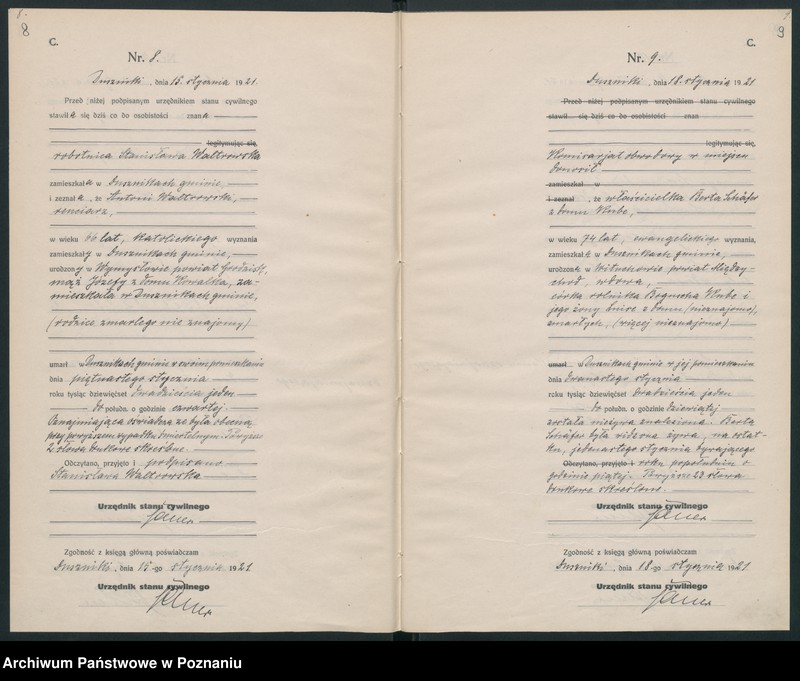 8
C.
Nr. 8.
Duszniki, dnia 15. stycznia 1921
Przed niżej podpisanym urzędnikiem stanu cywilnego
stawiła się dziś co do osobistości znana
legitymując się,
robotnica Stanisława Waltrowska
zamieszkała w Dusznikach gminie
i zeznała, że Antoni Waltrowski,
renciarz,
w wieku 66 lat, katolickiego wyznania
zamieszkały w Dusznikach gminie,
urodzony w Wymysłowie powiat Grodzisk,
mąż Józefy z domu Kowalka, za-
mieszkała w Dusznikach gminie,
(rodzice zmarłego nie znajomy)
umarł w Dusznikach gminie w swoim pomieszkaniu
dnia piętnastego stycznia
roku tysiąc dziewięćset dwadzieścia jeden
do połudn. o godzinie czwartej.
Oznajmiająca oświadcza że była obecną
przy powyższem wypadku śmiertelnym. Powyższe
2 słowa drukowe skreślone.
Odczytano, przyjęto i podpisano
Stanisława Waltrowska
Urzędnik stanu cywilnego
Zgodność z księgą główną poświadczam
Duszniki, dnia 15-go stycznia 1921
Urzędnik stanu cywilnego
9
C.
Nr. 9.
Duszniki, dnia 18. stycznia 1921
Przed niżej podpisanym urzędnikiem stanu cywilnego
stawił się dziś co do osobistości znan
legitymując się,
Komisarjat obwodowy w miejscu
donosił
zamieszkał w
i zeznał, że właścicielka Berta Schäfer
z domu Kube,
w wieku 74 lat, ewangelickiego wyznania,
zamieszkała w Dusznikach gminie,
urodzona w Mituchowie powiat Między-
chód, wdowa,
córka rolnika Bogucha Kube i
jego żony Luise z domu (nieznajomo),
zmarłych, (więcej nieznajomo)
umarł w Dusznikach gminie w jej pomieszkaniu
dnia dwunastego stycznia
roku tysiąc dziewięćset dwadzieścia jeden
do połudn. o godzinie dziewiątej
została nieżywa znaleziona. Berta
Schäfer była widzona żywa, na ostat-
ku, jedenastego stycznia bieżącego
Odczytano, przyjęto i roku popołudniu o
godzinie piątej. Powyższe 23 słowa
drukowe skreślone.
Urzędnik stanu cywilnego
Zgodność z księgą główną poświadczam
Duszniki, dnia 18-go stycznia 1921
Urzędnik stanu cywilnego
Archiwum Państwowe w Poznaniu